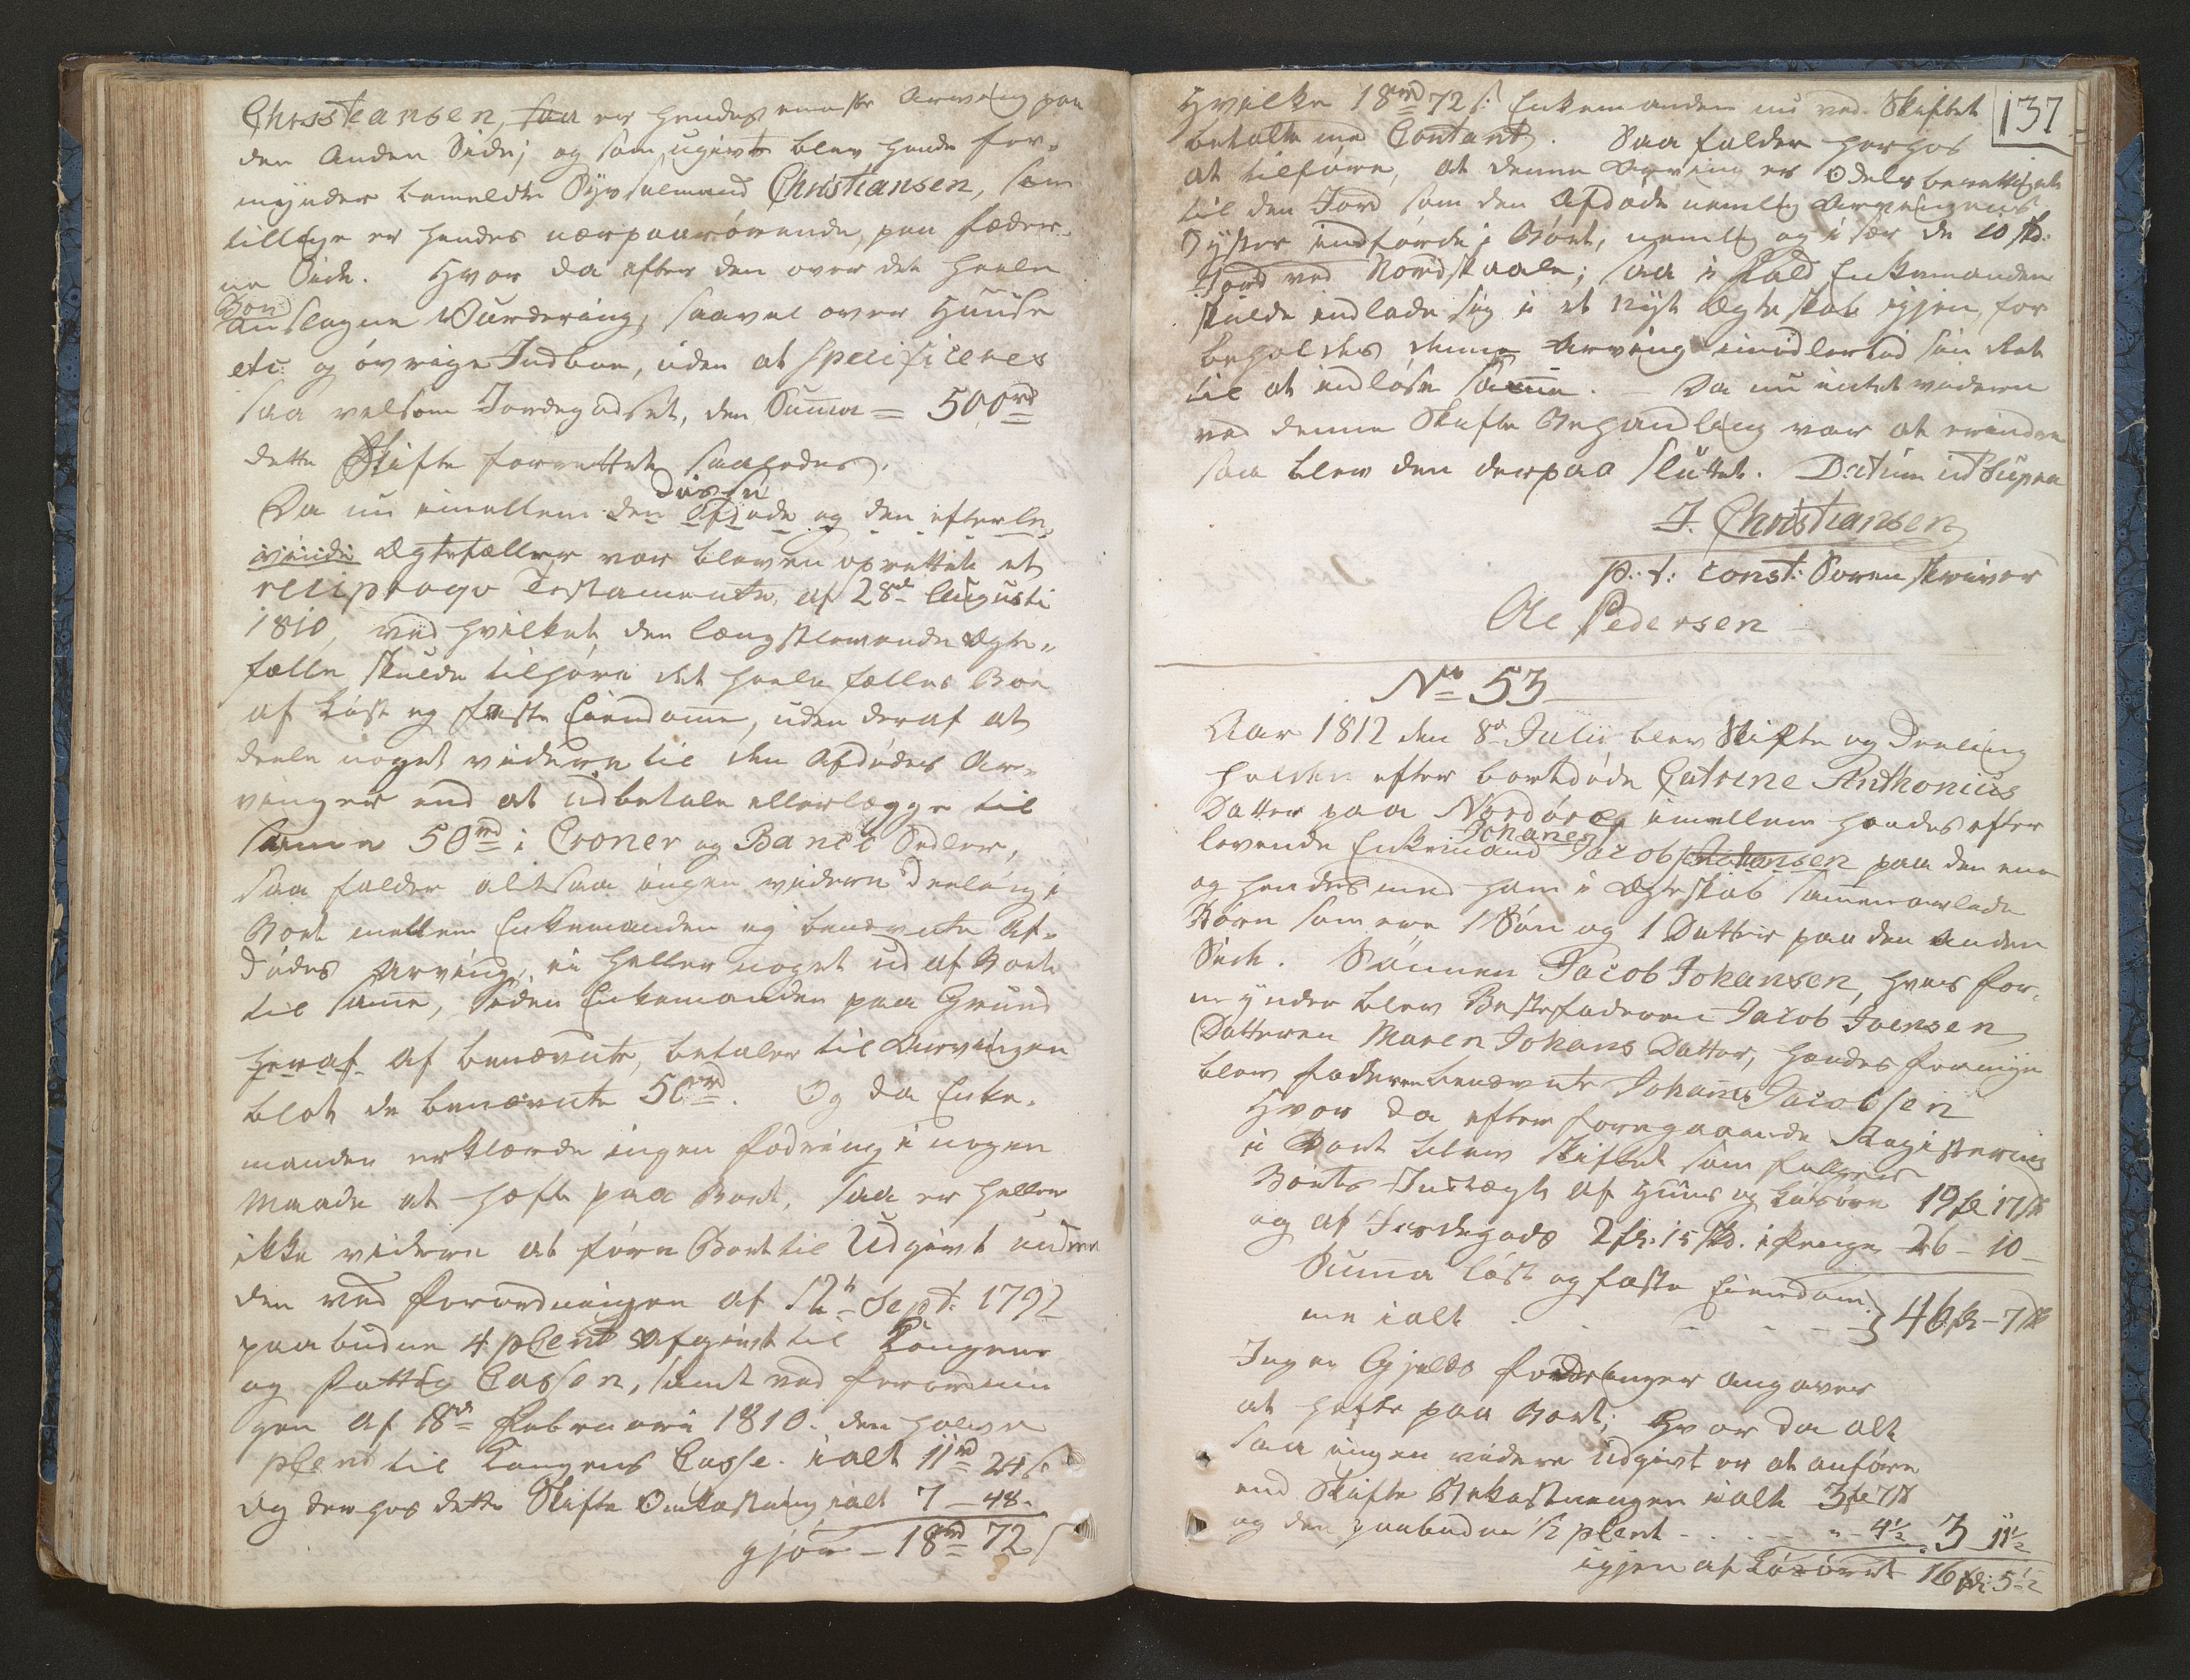 Christiansen, saa er hendes eneste Arving paa
den Anden Side; og som ugivt blev hende for-
mynder bemeldte Sysselmand Christiansen, som
tillige er hendes nærpaarørende, paa Fæder-
ne Side. Hvor da efter den over det heele
Boe
anslagne Vurdering, saavel over Huuse
etc: og øvrige Indboe, uden at specificeres
saa velsom Jordegodset, den Suma = 500 rd
dette Skifte forrettet saaledes.
Da nu imellem den Afdøde og den efterle-
disse
vende Ægtefæller var bleven oprettet et
reciproqve Testamente, af 28de Augusti
1810, ved hvilket den længstlevende Ægte-
fælle skulde tilhøre det heele fælles Boe
af Løst og faste Eiendome, uden deraf at
deele noget videre til den Afdødes Ar-
vinger end at udbetale ellerlægge til
samme 50 rd i Croner og Banco Sedler,
saa falder altsaa ingen videre Deeling i
Boet mellem Enkemanden og benævnte Af-
dødes Arving, ei heller noget ud af Boet
til same, siden Enkemanden paa Grund
heraf af benævnte, betaler til Arvingen
blot de benævnte 50 rd. Og da Enke-
manden erklærede ingen fodring i nogen
Maade at hæfte paa Boet, saa er heller
ikke videre at føre Boet til Udgivt uden
den ved Forordningen af 12te Sept: 1792
paabudne 4 pCent Afgivt til Kongens
og Fattig Cassen, samt ved Forordnin
gen af 18de Februari 1810. den halve
pCent til Kongens Casse. ialt 11 rd 24 s
og derhos dette Skifte Omkostning ialt 7 - 48.
gjør - 18 rd 72 s
137
Hvilke 18 rd 72 s: Enkemanden nu ved Skiftet
betalte med Contant. Saa falder herhos
at tilføre, at denne Arving er Odelsberettiget
til den Jord som den Afdøde nemlig Arvingens
Syster indførde i Boet, nemlig og i sær de 10 skd:
Jord ved Nordskaale; saa i fald Enkemanden
skulde indlade sig i et nyt Ægteskab igjen, for
beholdes denne Arving imidlertid sin Ret
til at indløse samme. - Da nu intet videre
ved denne Skifte Behandling var at erindre
saa blev den derpaa sluttet. Datum ut Supra
J. Christiansen
p: t: const: Sorenskriver
Ole Pedersen
No 53
Aar 1812 den 8de Julii blev Skifte og Deeling
holden efter bortdøde Catrine Anthonius
Datter paa Nordøre imellem hendes efter
Johanes
levende Enkemand Jacobsen Johansen paa den ene
og hendes med ham i Ægteskab sammenavlede
Børn som ere 1 Søn og 1 Datter paa den anden
Side. Sønnen Jacob Johansen, hvis for-
mynder blev Bestefaderen Jacob Joensen
Datteren Maren Johans Datter, hendes formyn
blev faderen benævnte Johanes Jacobsen
Hvor da efter foregaaende Registering
i Boet blev skiftet som følger
Boets Indtægt af Huus og Løsøre 19 fl 17 sk
og af Jordegods 2 fl: 15 skd. i Penge 26 - 10 -
Suma løst og faste Eiendom-
me ialt . - - - - } 46 fl - 7 sk
Ingen Gjelds fordringer angaves
at hefte paa Boet; Hvor da alt
saa ingen videre Udgivt er at anføre
end Skifte Bekostningen ialt 3 fl 7 sk
og den paabudne ½ pCent - . . - - " - 4½ . 3 11½
igjen af Løsøret 16 fl: 5½